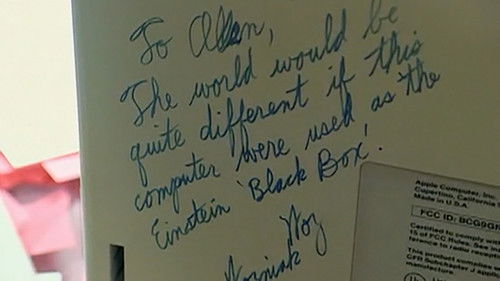 To Allan,
The world would be
quite different if this
computer were used as the
Einstein 'Black Box'.
Woz
Wozniak
Apple Computer, Inc.
Cupertino, California
Made in U.S.A.
FCC ID: BCG9GR
Certified to comply
15 of FCC Rules. See
ference to radio
This product
CFR Subchapter J
manufacture.